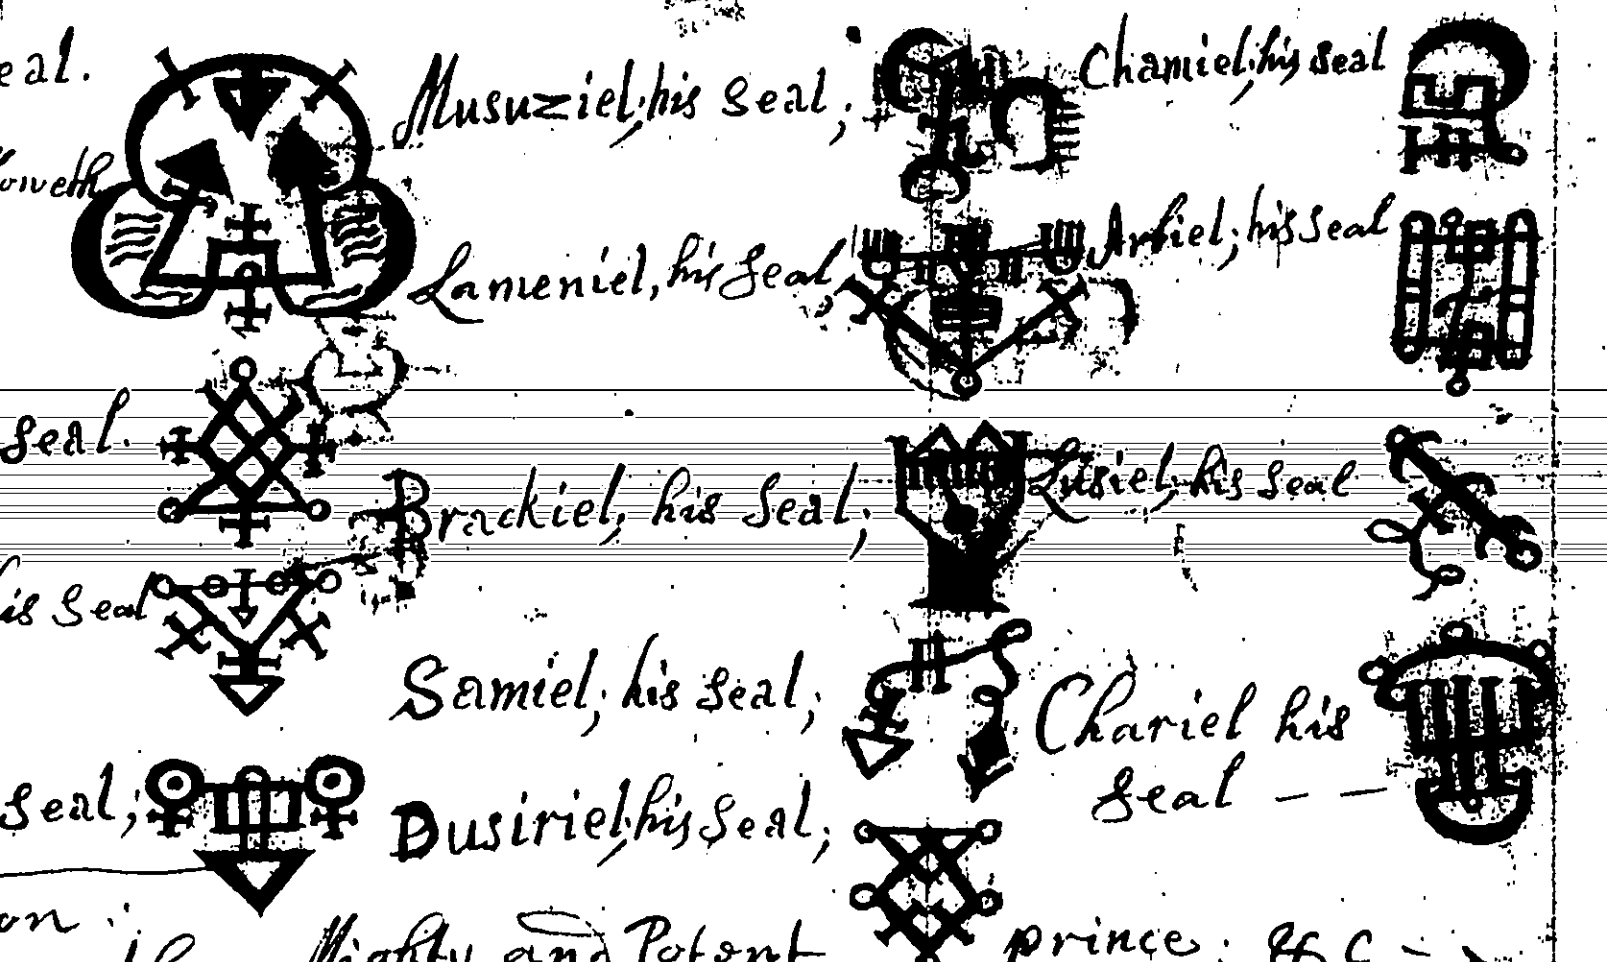 eal.
Musuziel, his seal;
Chamiel, his seal
Lameniel, his seal,
Arbiel, his seal
seal.
Brackiel, his seal;
Lusiel, his seal
is seal
Samiel, his seal;
Chariel his
seal
seal;
Dusiriel, his seal;
on:
Mighty and Potent
prince: &c